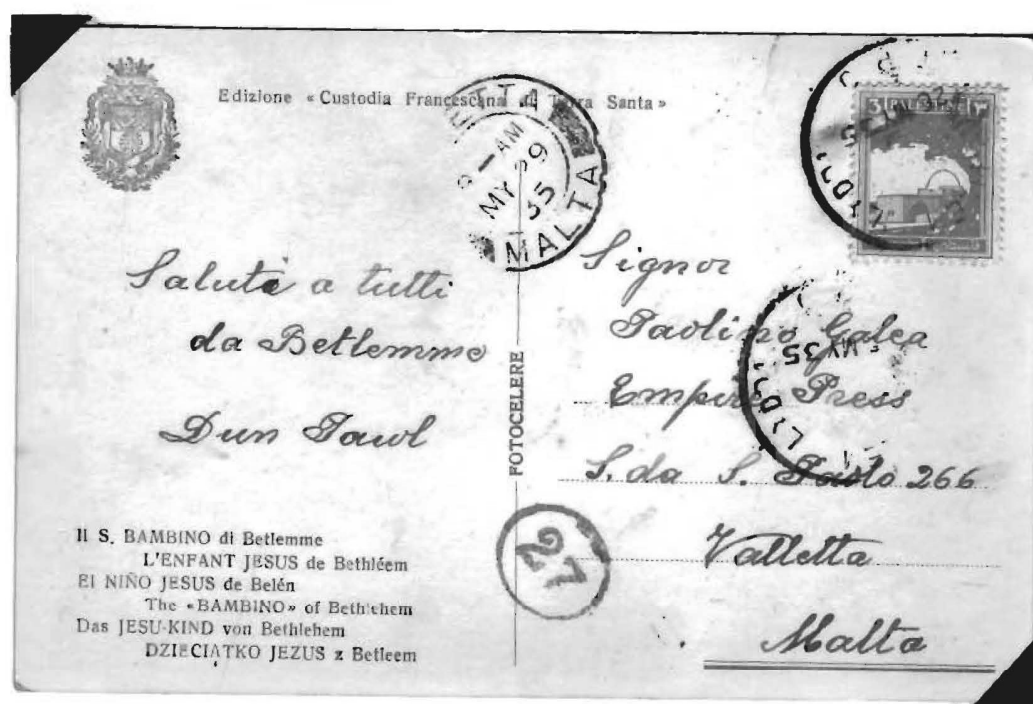 Edizione «Custodia Francescana di Terra Santa»
8-AM
MY 29
35
MALTA
3 PALESTINE ١٣
LYDDA
MY 35
LYDDA
Saluti a tutti
da Betlemme
Dun Pawl
FOTOCELERE
Signor
Paolino Galea
Empire Press
S.da S. Paolo 266
Valletta
Malta
27
Il S. BAMBINO di Betlemme
L'ENFANT JESUS de Bethléem
El NIÑO JESUS de Belén
The «BAMBINO» of Bethlehem
Das JESU-KIND von Bethlehem
DZIECIĄTKO JEZUS z Betleem